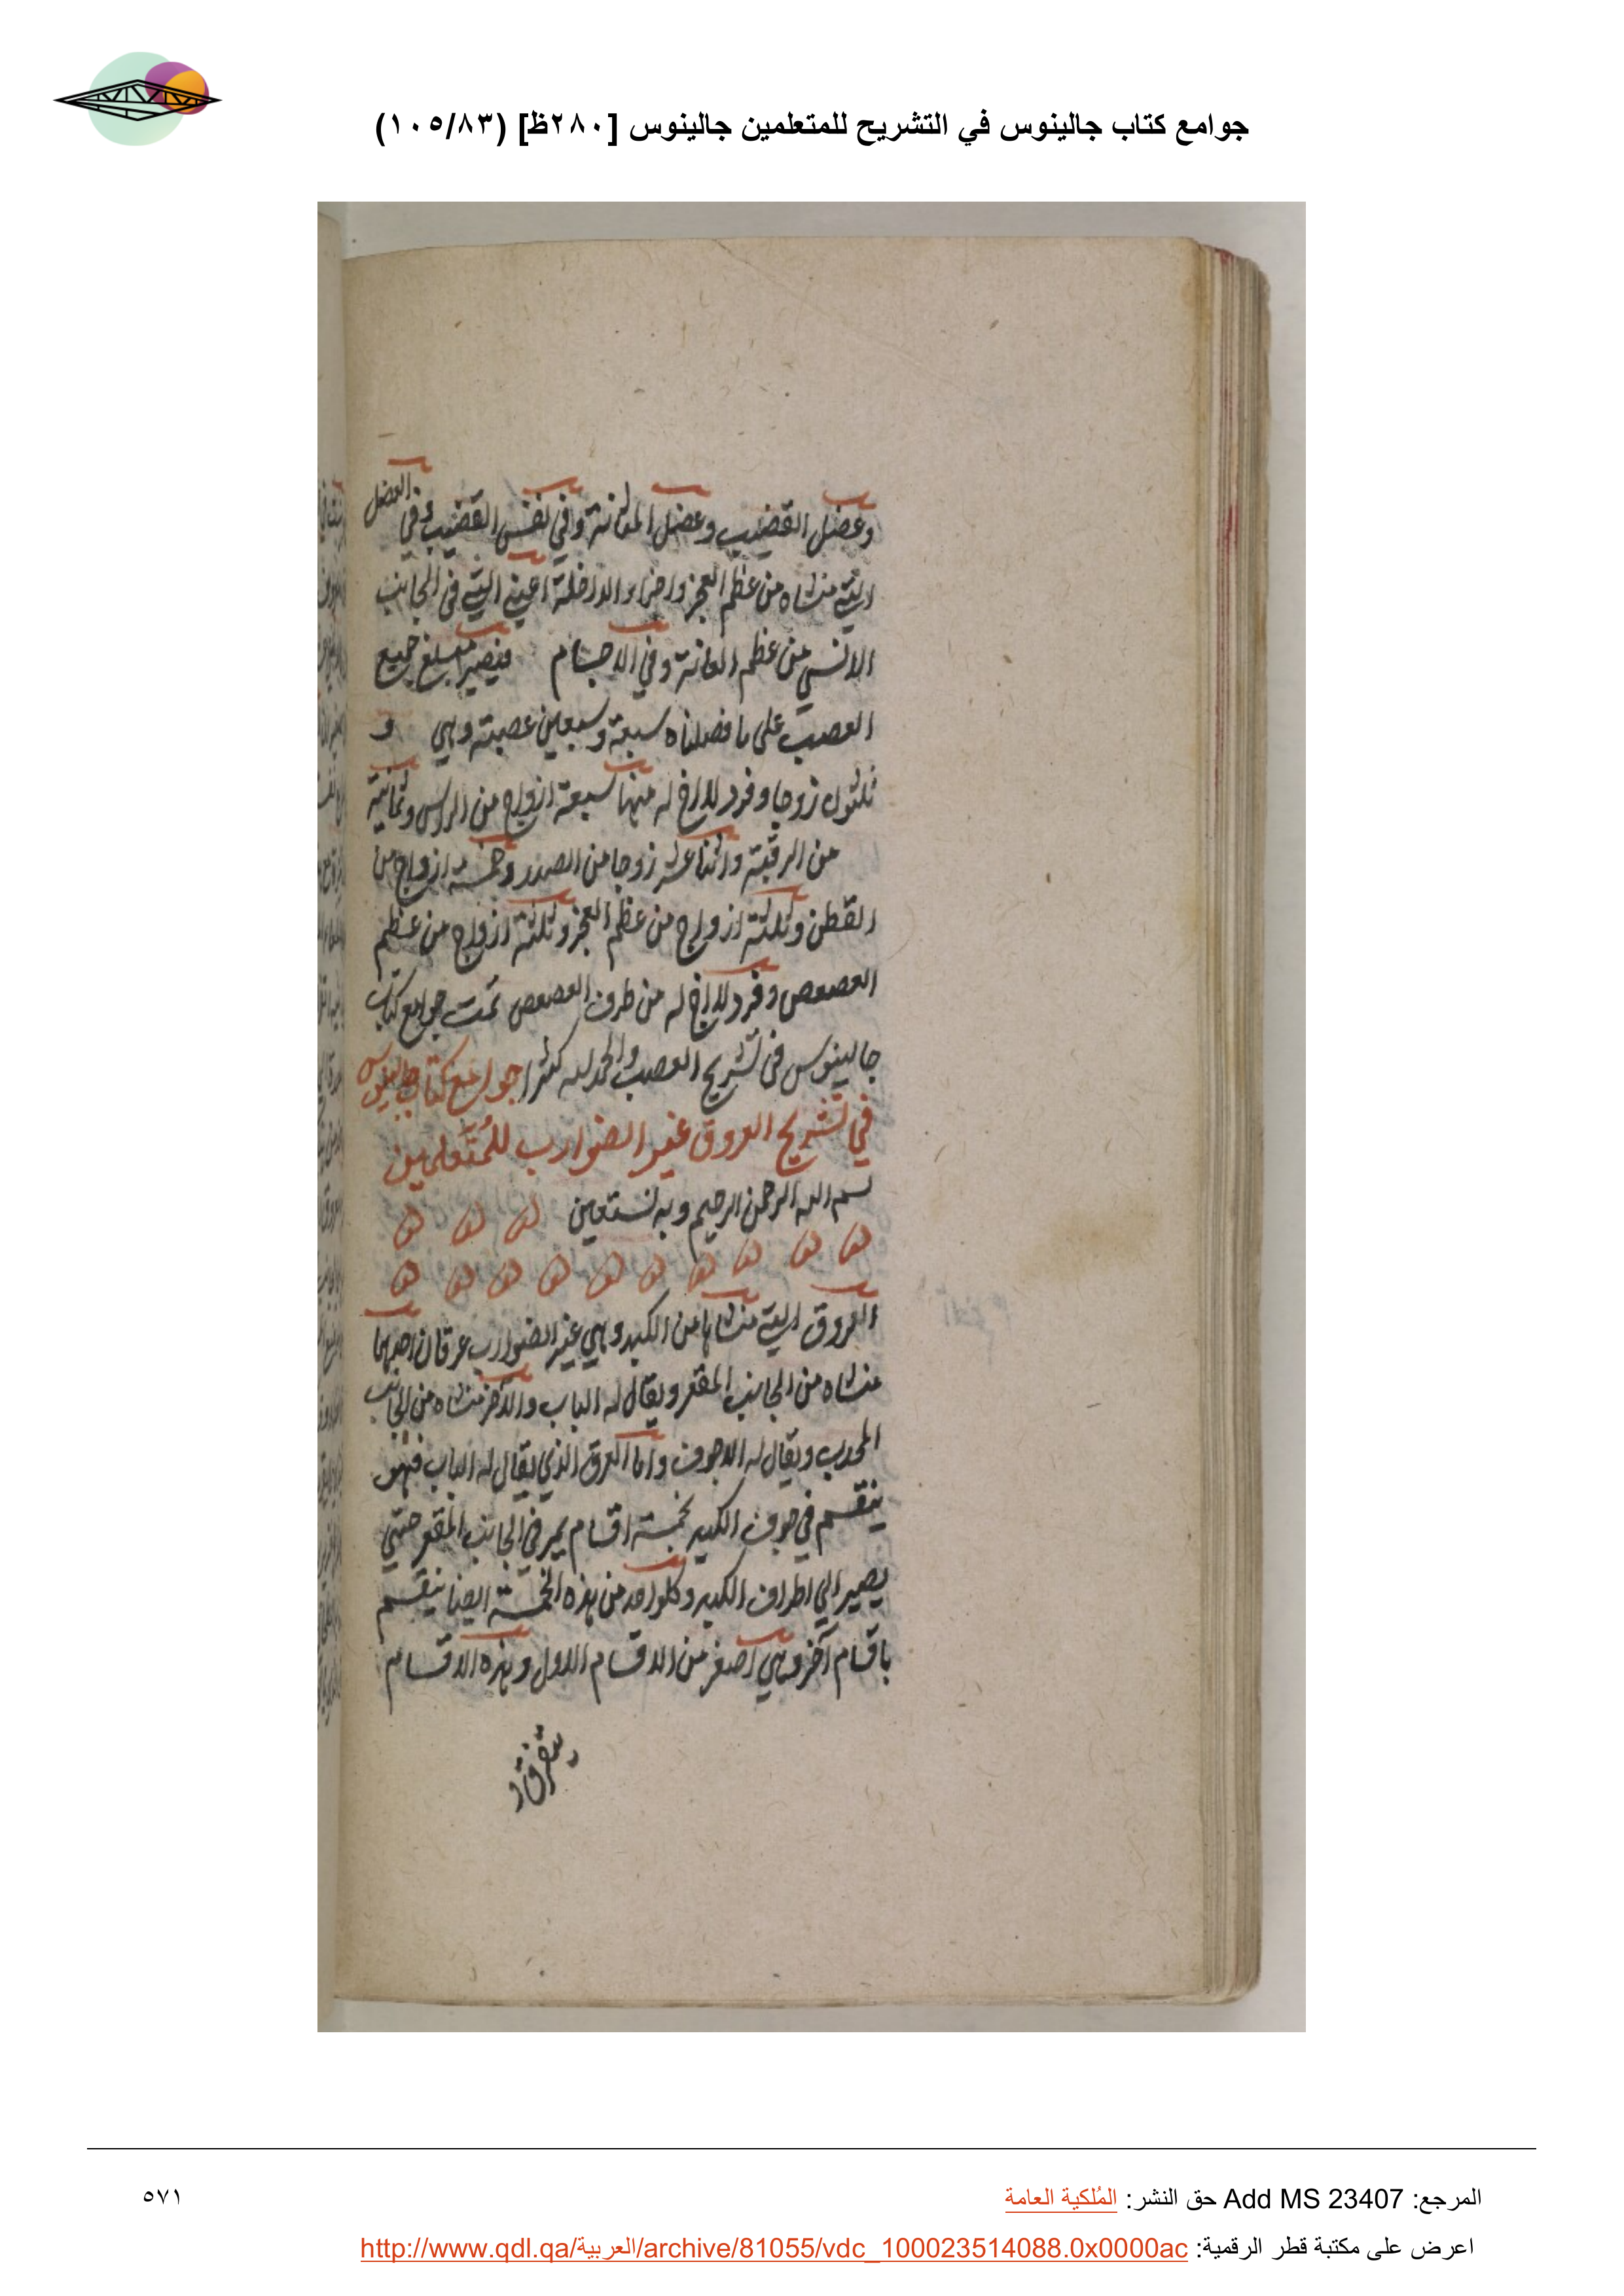 جوامع كتاب جالينوس في التشريح للمتعلمين جالينوس [٢٨٠ظ] (١٠٥/٨٣)
وعضل القضيب وعضل المثانة وفي نفس القضيب وفي العضل
التي منشاه من عظم العجز واجزاء الداخلة اعني التي في الجانب
الانسي من عظم العانة وفي الاجسام فيصير مبلغ جميع
العصب على ما فصلناه سبعة وسبعين عصبة وهي و
ثلثون زوجا وفرد لا اخ له منها سبعة ازواج من الراس وثمانية
من الرقبة واثنا عشر زوجا من الصدر وخمسة ازواج من
القطن وثلثة ازواج من عظم العجز وثلثة ازواج من عظم
العصعص وفرد لا اخ له من طرف العصعص تمت جوامع كتاب
جالينوس في تشريح العصب والحمد لله كثيرا جوامع كتاب جالينوس
في تشريح العروق غير الضوارب للمُتَعلمين
بسم الله الرحمن الرحيم وبه نستعين
العروق التي منشاها من الكبد وهي غير الضوارب عرقان احدهما
منشاه من الجانب المقعر ويقال له الباب والآخر منشاه من الجانب
المحدب ويقال له الاجوف واما العرق الذي يقال له الباب فهو
ينقسم في جوف الكبد بخمسة اقسام يمر في الجانب المقعر حتي
يصير الي اطراف الكبد وكلواحد من هذه الخمسة ايضا ينقسم
باقسام آخر وهي اصغر من الاقسام الاول وهذه الاقسام
المرجع: Add MS 23407 حق النشر: المُلكية العامة
٥٧١
اعرض على مكتبة قطر الرقمية: http://www.qdl.qa/العربية/archive/81055/vdc_100023514088.0x0000ac